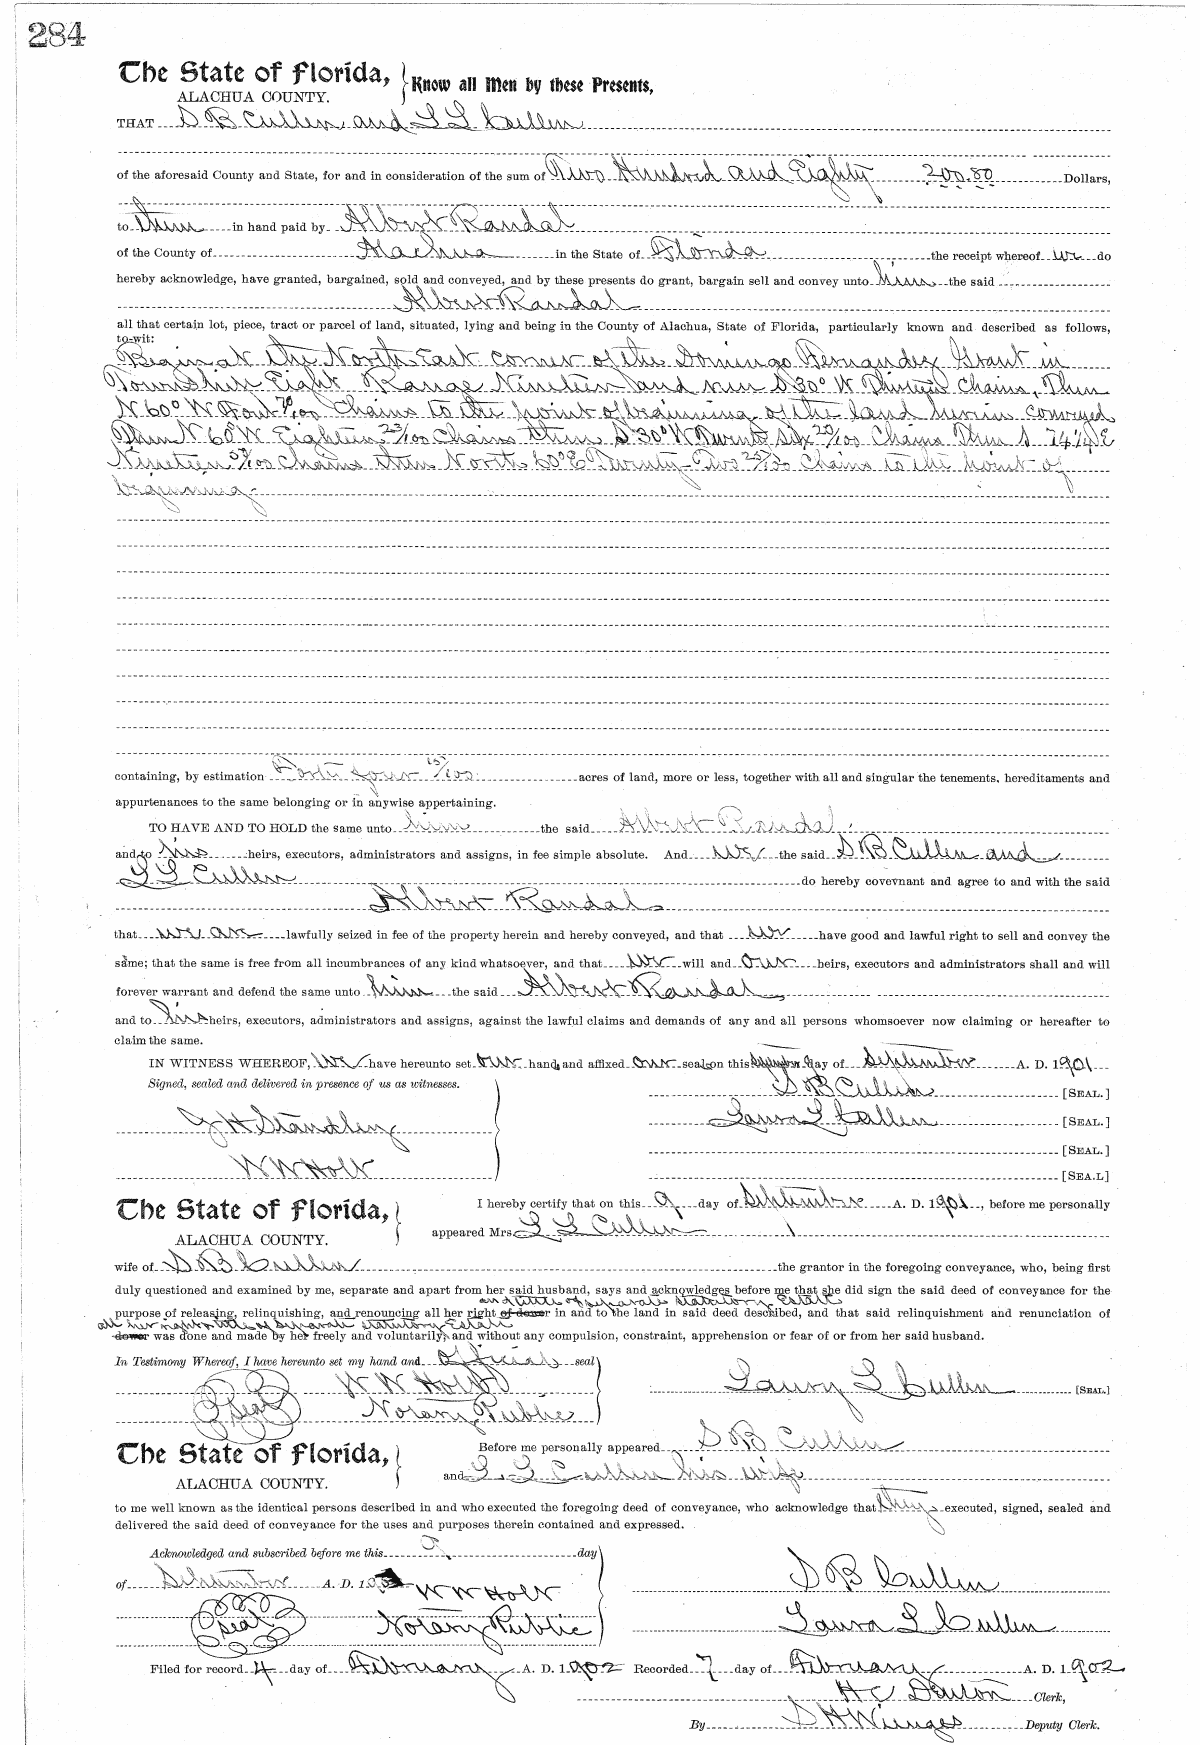 284
The State of Florida, } Know all Men by these Presents,
ALACHUA COUNTY.
THAT S B Cullen and L L Cullen
of the aforesaid County and State, for and in consideration of the sum of Two Hundred and Eighty 200.80 Dollars,
to them in hand paid by Albert Randal
of the County of Alachua in the State of Florida the receipt whereof we do
hereby acknowledge, have granted, bargained, sold and conveyed, and by these presents do grant, bargain sell and convey unto him the said
Albert Randal
all that certain lot, piece, tract or parcel of land, situated, lying and being in the County of Alachua, State of Florida, particularly known and described as follows,
to-wit:
Begin at the North East corner of the Domingo Fernandez Grant in
Township Eight Range Nineteen and run S 30° W Thirteen Chains, Then
N 60° W Four 70/100 Chains to the point of beginning of the land herein conveyed
Then N 60° W Eighteen 23/100 Chains then S 30° W Twenty Six 20/100 Chains Then S 74 1/4 E
Nineteen 57/100 Chains then North 60° E Twenty-Two 25/100 Chains to the point of
beginning.
containing, by estimation Forty four /100 acres of land, more or less, together with all and singular the tenements, hereditaments and
appurtenances to the same belonging or in anywise appertaining.
TO HAVE AND TO HOLD the same unto him the said Albert Randal
and to his heirs, executors, administrators and assigns, in fee simple absolute. And we the said S B Cullen and
L L Cullen do hereby covevnant and agree to and with the said
Albert Randal
that we are lawfully seized in fee of the property herein and hereby conveyed, and that we have good and lawful right to sell and convey the
same; that the same is free from all incumbrances of any kind whatsoever, and that we will and our heirs, executors and administrators shall and will
forever warrant and defend the same unto him the said Albert Randal
and to his heirs, executors, administrators and assigns, against the lawful claims and demands of any and all persons whomsoever now claiming or hereafter to
claim the same.
IN WITNESS WHEREOF, we have hereunto set our hands and affixed our seals on this day of September A. D. 1901
Signed, sealed and delivered in presence of us as witnesses. S B Cullen [SEAL.]
J H Standley Laura L Cullen [SEAL.]
[SEAL.]
W W Holt [SEA.L]
The State of Florida, } I hereby certify that on this 9 day of September A. D. 1901, before me personally
ALACHUA COUNTY. appeared Mrs L L Cullen
wife of S B Cullen the grantor in the foregoing conveyance, who, being first
duly questioned and examined by me, separate and apart from her said husband, says and acknowledges before me that she did sign the said deed of conveyance for the
and title of separate statutory Estate
purpose of releasing, relinquishing, and renouncing all her right of dower in and to the land in said deed described, and that said relinquishment and renunciation of
all her right & title of separate statutory Estate
dower was done and made by her freely and voluntarily, and without any compulsion, constraint, apprehension or fear of or from her said husband.
In Testimony Whereof, I have hereunto set my hand and official seal
W W Holt Laury L Cullen [SEAL.]
Seal Notary Public
The State of Florida, } Before me personally appeared S B Cullen
ALACHUA COUNTY. and L. L Cullen his wife
to me well known as the identical persons described in and who executed the foregoing deed of conveyance, who acknowledge that they executed, signed, sealed and
delivered the said deed of conveyance for the uses and purposes therein contained and expressed.
Acknowledged and subscribed before me this 9 day
of September A. D. 190 W W Holt S B Cullen
Seal Notary Public Laura L Cullen
Filed for record 4 day of February A. D. 1902 Recorded 7 day of February A. D. 1902
H C Denton Clerk,
By S H Wienges Deputy Clerk.